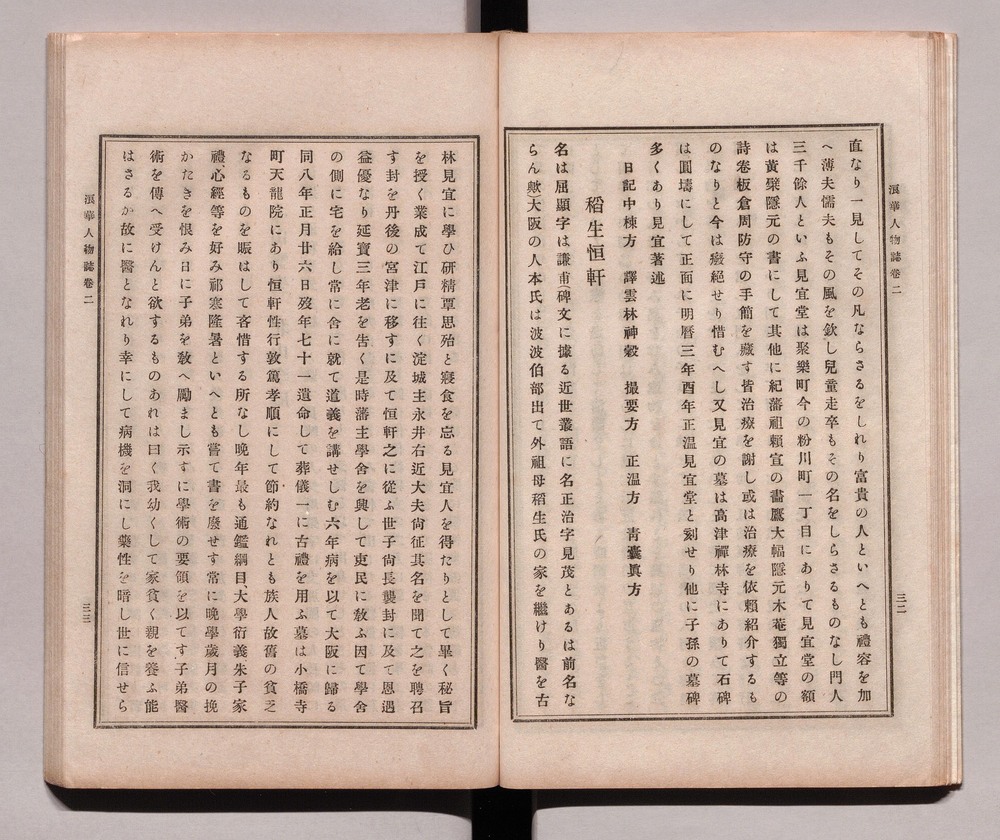 浪華人物誌卷二
三二
直なり一見してその凡ならさるをしれり富貴の人といへとも禮容を加
へ薄夫懦夫もその風を欽し兒童走卒もその名をしらさるものなし門人
三千餘人といふ見宜堂は聚樂町今の粉川町一丁目にありて見宜堂の額
は黃檗隱元の書にして其他に紀藩祖賴宣の畵鷹大幅隱元木菴獨立等の
詩卷板倉周防守の手簡を藏す皆治療を謝し或は治療を依賴紹介するも
のなりと今は癈絕せり惜むへし又見宜の墓は高津禪林寺にありて石碑
は圓壔にして正面に明曆三年酉年正温見宜堂と刻せり他に子孫の墓碑
多くあり見宜著述
日記中棟方　譯雲林神彀　撮要方　正温方　靑囊眞方
稻生恒軒
名は屈顯字は謙甫(碑文に據る近世叢語に名正治字見茂とあるは前名な
らん歟)大阪の人本氏は波波伯部出て外祖母稻生氏の家を繼けり醫を古
林見宜に學ひ硏精覃思殆と寢食を忘る見宜人を得たりとして畢く秘旨
を授く業成て江戶に往く淀城主永井右近大夫尙征其名を聞て之を聘召
す封を丹後の宮津に移すに及て恒軒之に從ふ世子尙長襲封に及て恩遇
益優なり延寶三年老を吿く是時藩主學舍を興して吏民に敎ふ因て學舍
の側に宅を給し常に舍に就て道義を講せしむ六年病を以て大阪に歸る
同八年正月廿六日歿年七十一遺命して葬儀一に古禮を用ふ墓は小橋寺
町天龍院にあり恒軒性行敦篤孝順にして節約なれとも族人故舊の貧乏
なるものを賑はして吝惜する所なし晩年最も通鑑綱目、大學衍義朱子家
禮、心經等を好み祁寒隆暑といへとも嘗て書を廢せす常に晩學歲月の挽
かたきを恨み日に子弟を敎へ勵まし示すに學術の要領を以てす子弟醫
術を傳へ受けんと欲するものあれは曰く我幼くして家貧く親を養ふ能
はさるか故に醫となれり幸にして病機を洞にし藥性を暗し世に信せら
浪華人物誌卷二
三三